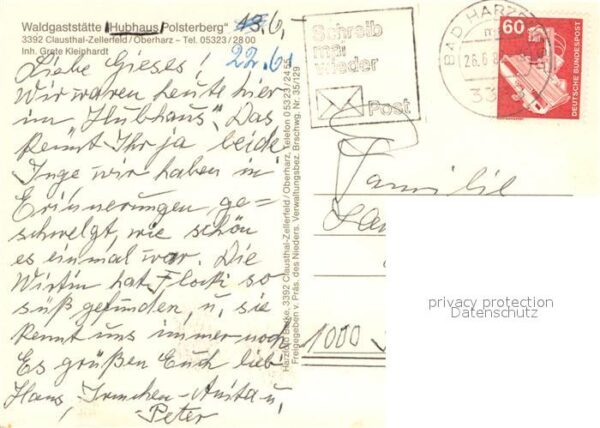 Waldgaststätte "Hubhaus Polsterberg"
3392 Clausthal-Zellerfeld / Oberharz – Tel. 05323 / 28 00
Inh. Grete Kleinhardt
13.6,
22.6.
Liebe Gieses!
Wir waren heute hier
im „Hubhaus". Das
kennt Ihr ja beide
Inge wir haben in
Erinnerungen ge=
schwelgt, wie schön
es einmal war. Die
Wirtin hat Flocki so
süß gefunden, u, sie
kennt uns immer noch
Es grüßen Euch lieb
Hans, Irmchen-Anita u,
Peter
3392 Clausthal-Zellerfeld / Oberharz, Telefon 0 53 23 / 24 55
Freigegeben v. Präs. des Nieders. Verwaltungsbez. Brschwg. Nr. 35/129
Schreib
mal
wieder
Post
BAD HARZ
26.6.8
33
60
DEUTSCHE BUNDESPOST
Familie
1000
privacy protection
Datenschutz